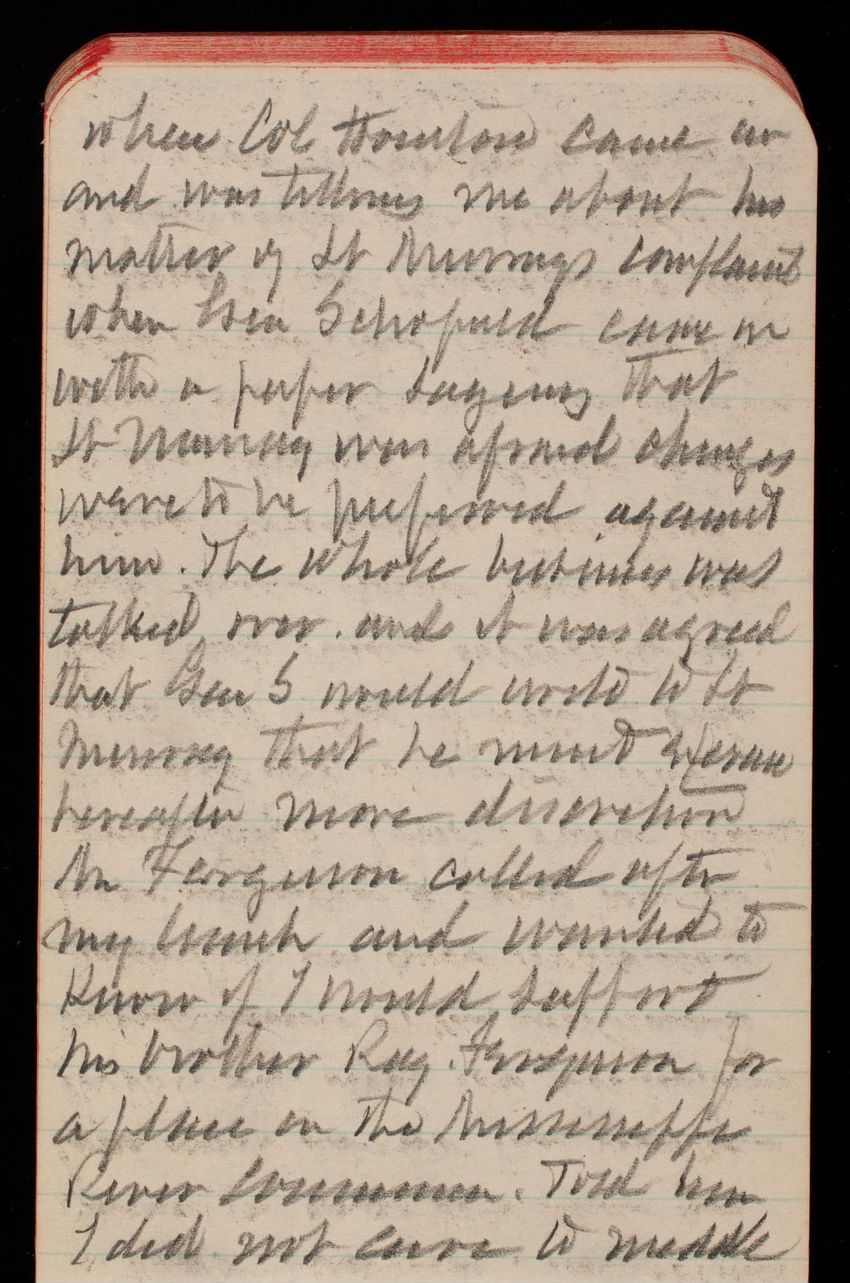 when Col Houston came in
and was telling me about his
matter of Lt Murrays complaint
when Gen Schofield came in
with a paper saying that
Lt Murray was afraid charges
were to be preferred against
him. The whole business was
talked over. and it was agreed
that Gen S would write to Lt
Murray that he must exercise
hereafter more discretion
Mr Ferguson called after
my lunch and wanted to
Know if I would support
his brother Ferguson for
a place on the Mississippi
River Commission. Told him
I did not care to meddle